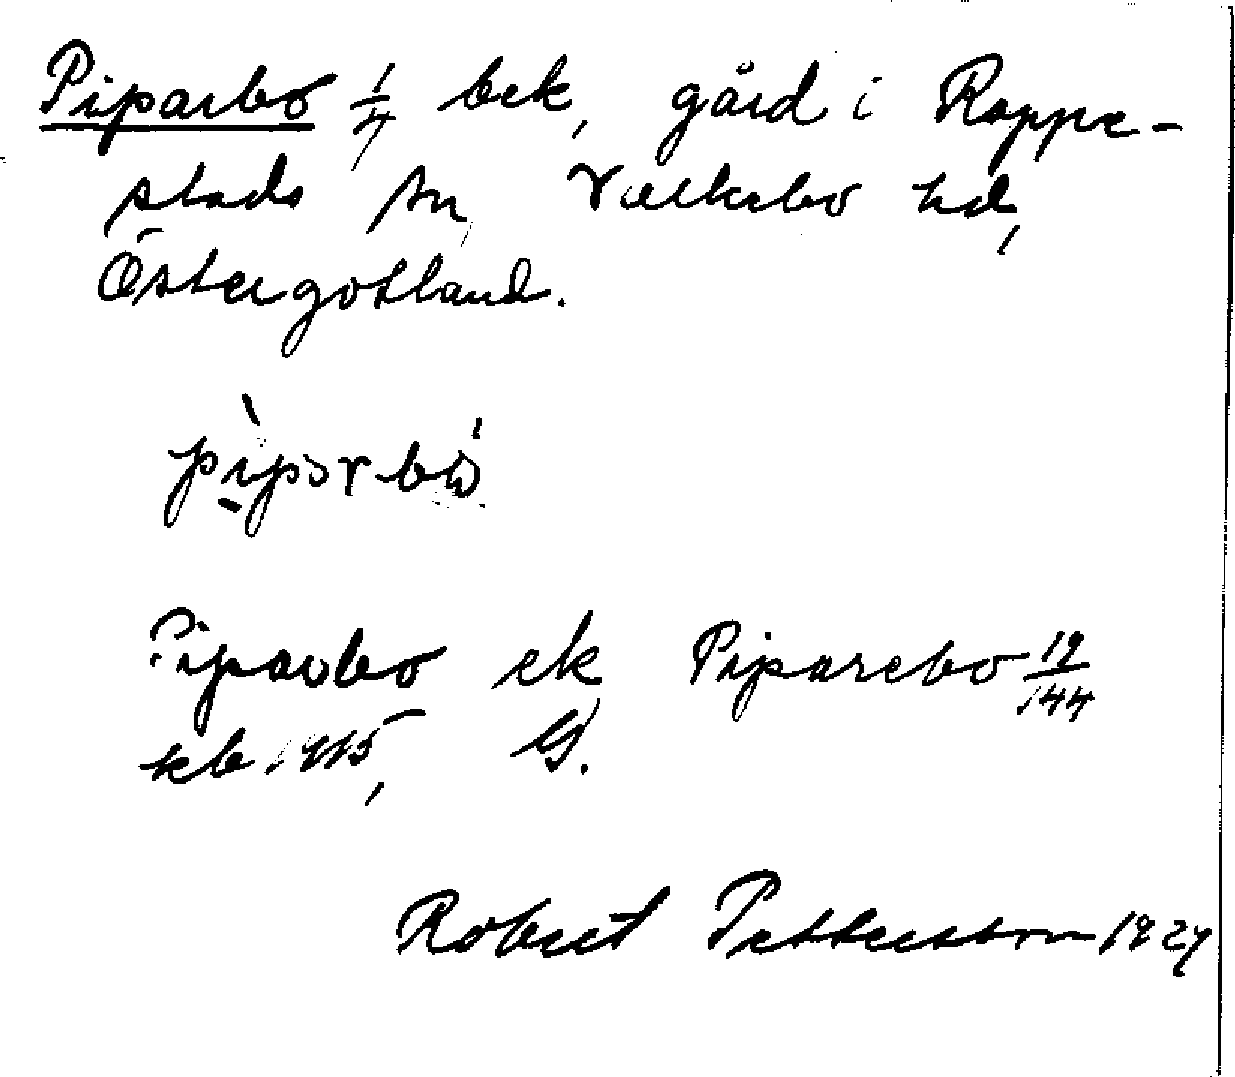 Piparbo 1/4 bek, gård i Rappe-
stads sn, Valkebo hd,
Östergötland.
pìpərbó
Piparbo ek Piparebo 19/144
kb 1915, G.
Robert Pettersson 1927